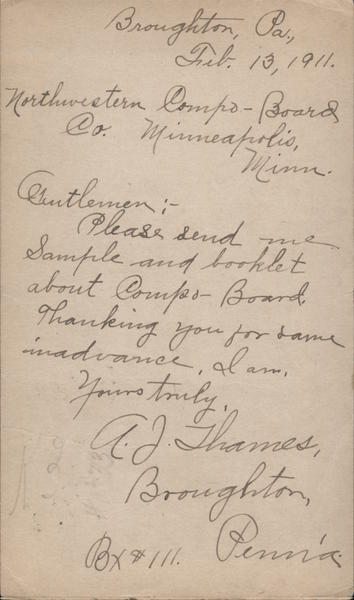 Broughton, Pa.,
Feb. 13, 1911.
Northwestern Compo-Board
Co. Minneapolis,
Minn.
Gentlemen;-
Please send me
Sample and booklet
about Compo-Board.
Thanking you for same
inadvance, I am,
Yours truly,
A. J. Thames,
Broughton,
Bx# 111. Penn'a.